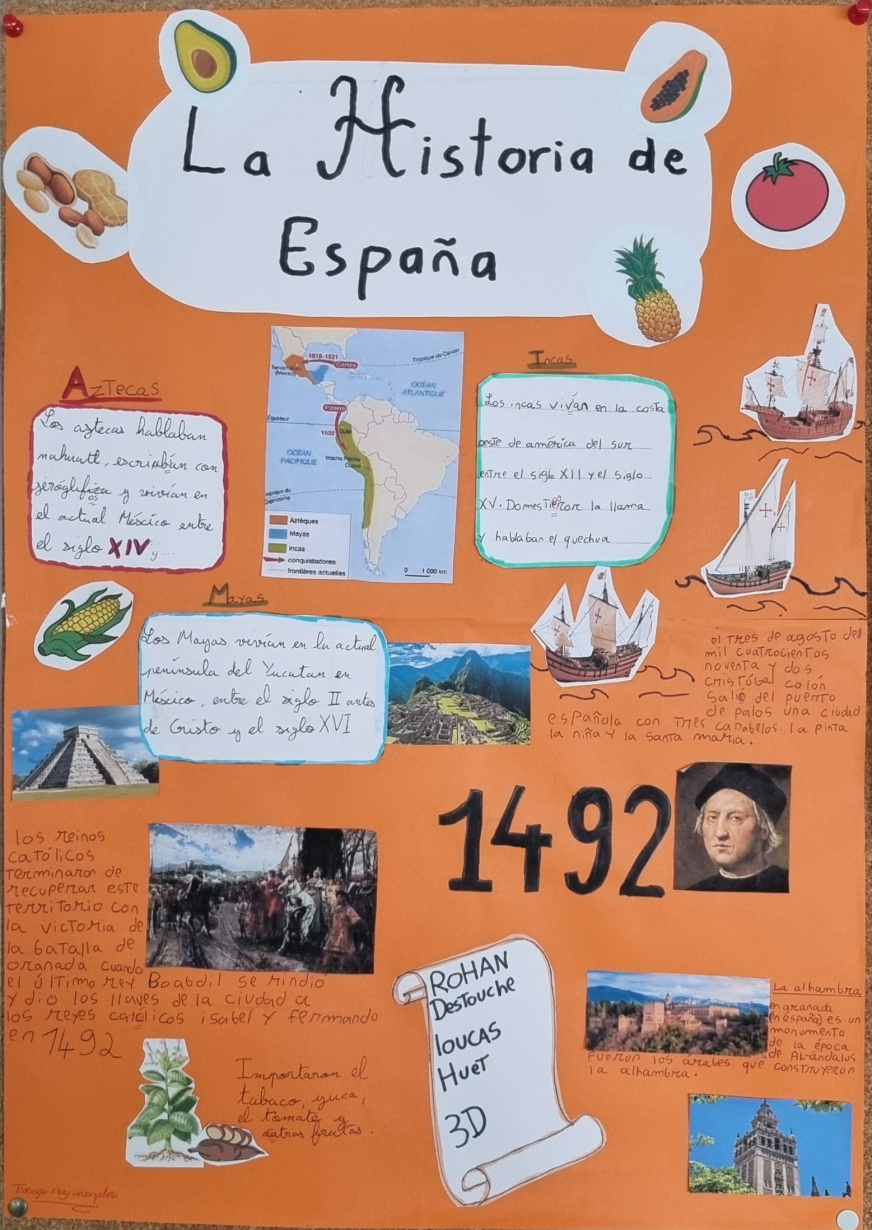 La Historia de
España
Aztecas
Los aztecas hablaban
nahuatl, escribían con
y vivían en
el actual Méscico entre
el siglo XIV y...
1519-1521
Cortés
Tropique du Cancer
OCÉAN
ATLANTIQUE
Pizarro
Équateur
1532
OCÉAN
PACIFIQUE
Machu Picchu
Cuzco
Aztèques
Mayas
Incas
conquistadores
frontières actuelles
0 1 000 km
Incas
Los incas vivían en la costa
oeste de américa del sur
entre el siglo XII y el siglo
XV. la llama
y hablaban el quechua
Mayas
Los Mayas vivían en la actual
península del Yucatan en
Méscico, entre el siglo II antes
de Cristo y el siglo XVI
el tres de agosto del
mil cuatrocientos
noventa y dos
cristóbal colón
salió del puerto
de palos una ciudad
española con tres carabelos la pinta
la niña y la santa maria.
1492
los reinos
católicos
terminaron de
recuperar este
territorio con
la victoria de
la batalla de
Granada cuando
el último rey Boabdil se rindió
y dio los llaves de la ciudad a
los reyes católicos isabel y fernando
en 1492
ROHAN
Destouche
loucas
Huet
3D
La alhambra
en granada
(en españa) es un
monumento
de la época
de AL-ándalus
fueron los árabes que construyeron
la alhambra.
Importaron el
tabaco, yuca,
el tomate y
otras frutas.
Trabajo muy incompleto